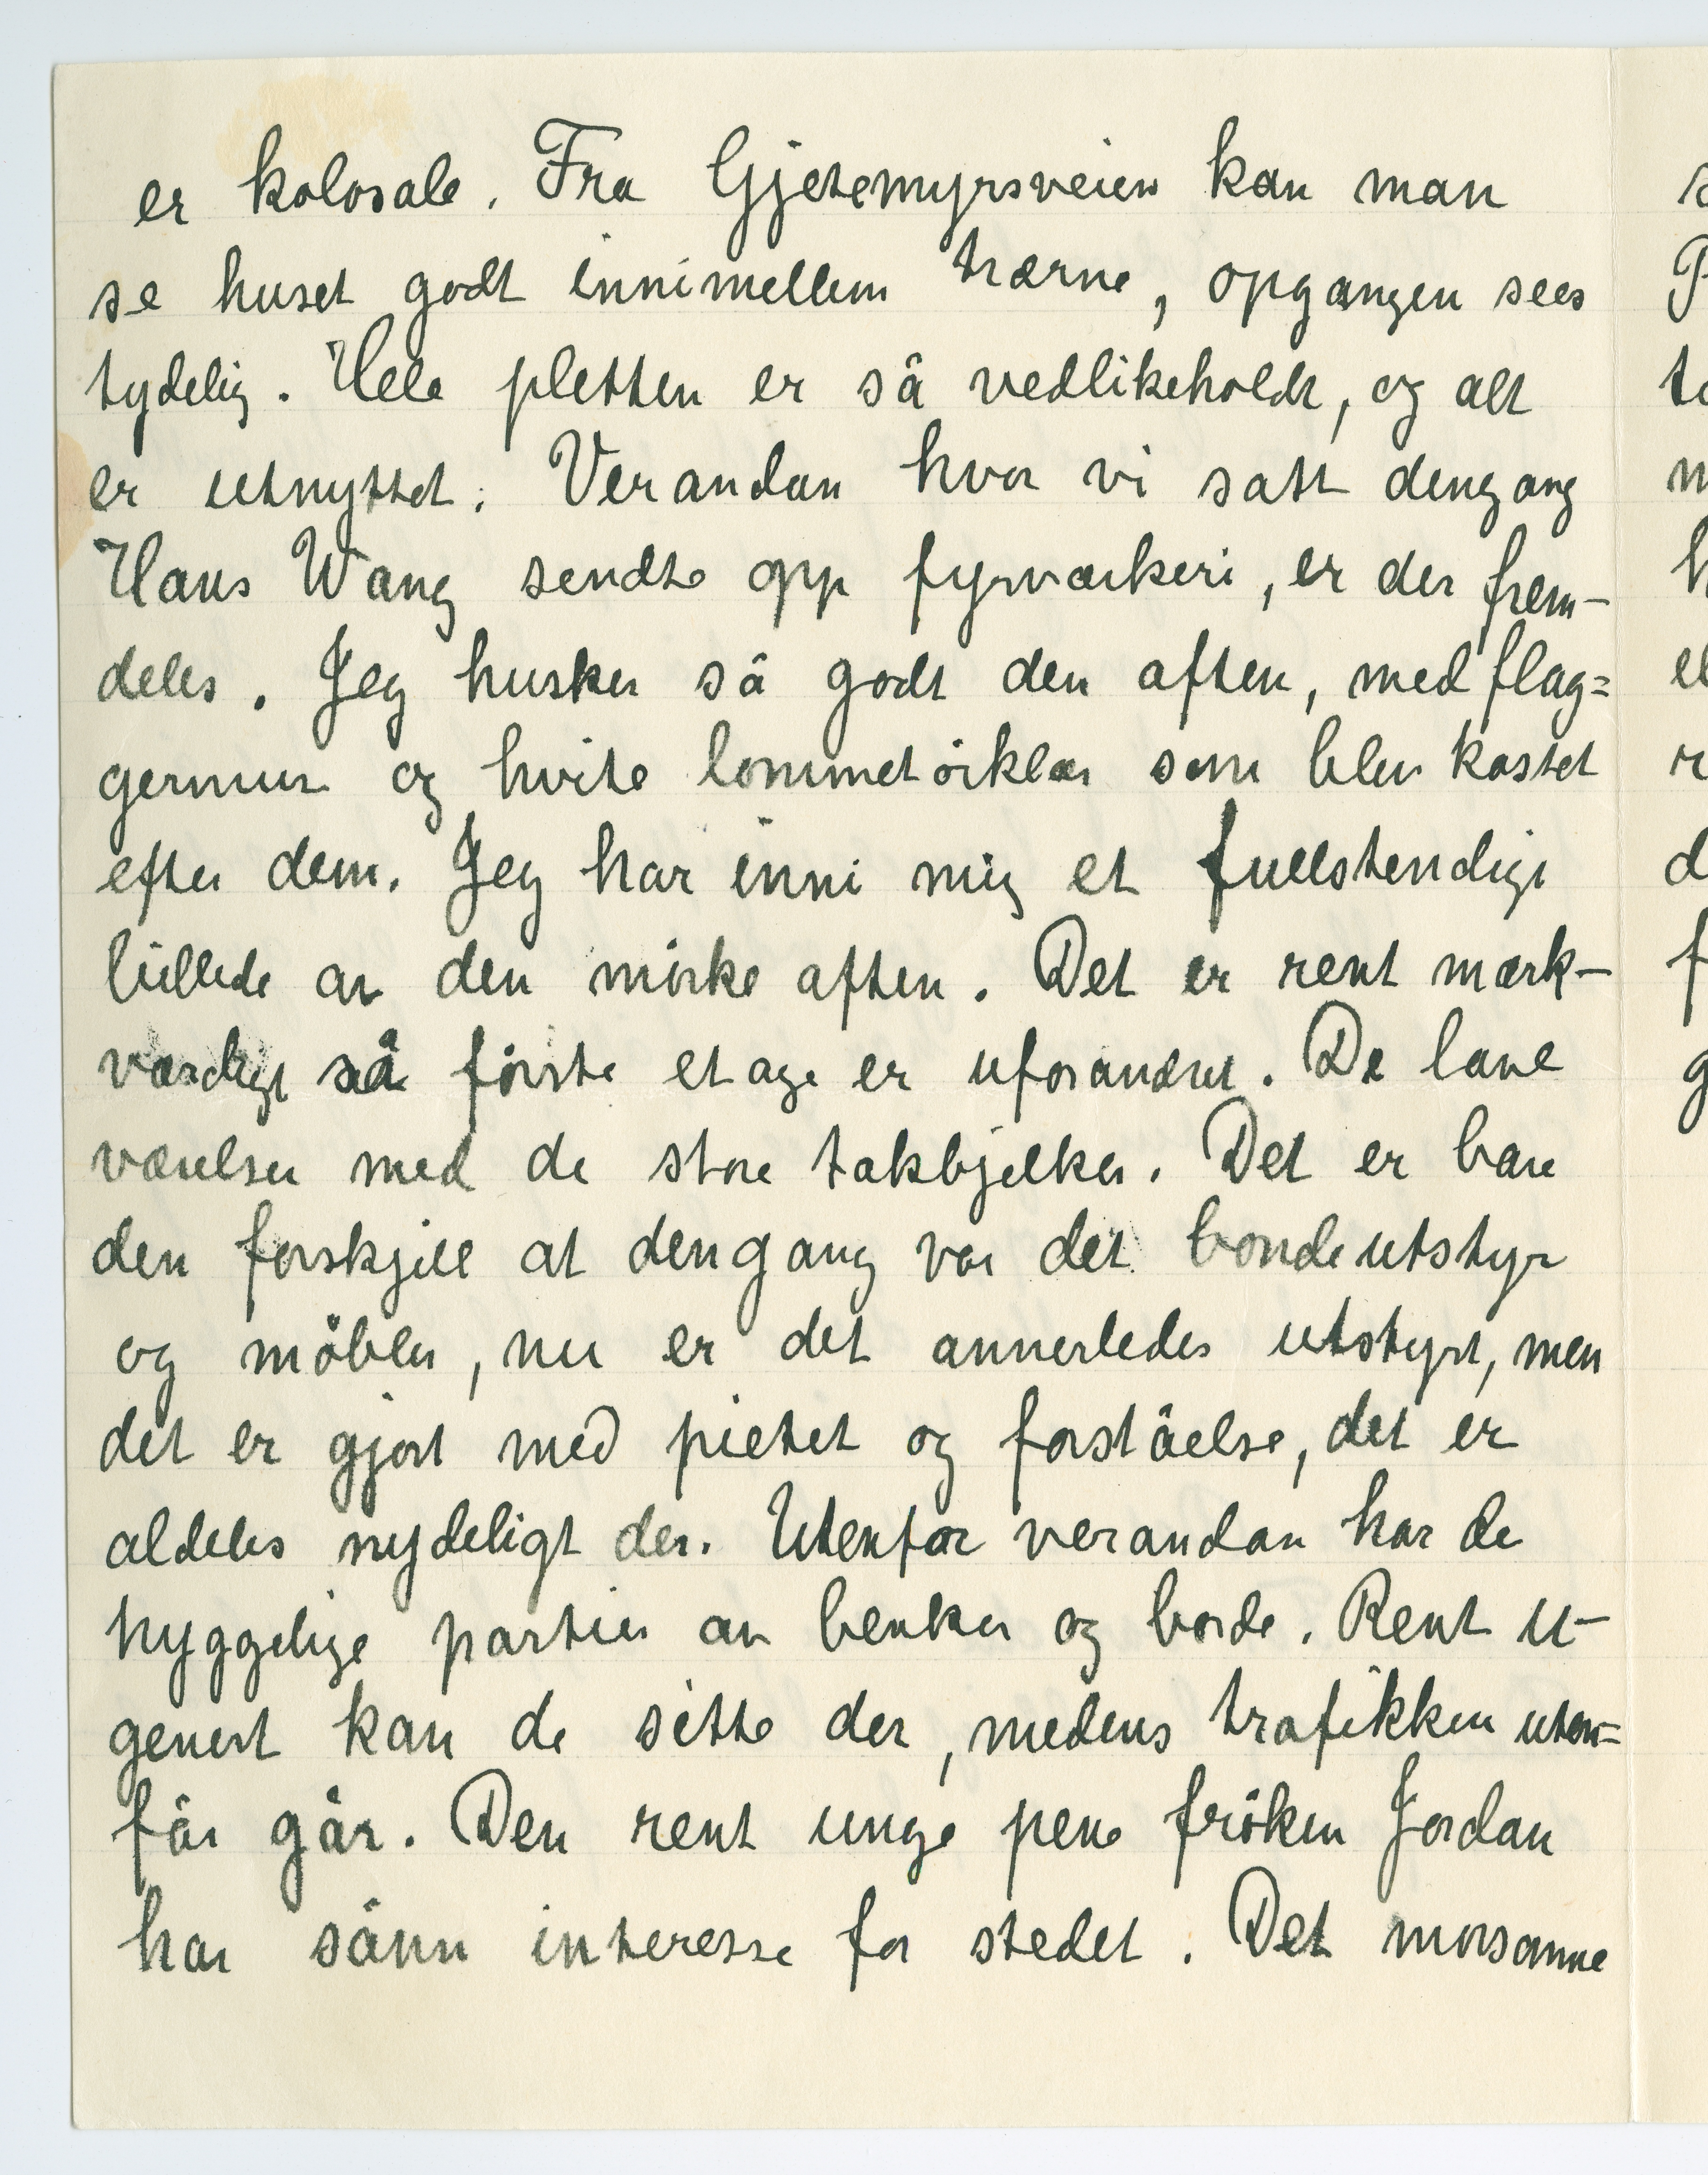 er kolosale. Fra Gjetemyrsveien kan man
se huset godt innimellem trærne, opgangen sees
tydelig. Hele pletten er så vedlikeholdt, og alt
er utnyttet. Verandan hvor vi satt dengang
Hans Wang sendte opp fyrværkeri, er der frem-
deles. Jeg husker så godt den aften, med flag=
germus og hvite lommetörklær som blev kastet
efter dem. Jeg har inni mig et fullstendigt
billede av den mörke aften. Det er rent mærk-
værdigt så förste etage er uforandret. De lave
værelser med de store takbjelker. Det er bare
den forskjell at dengang var det bondeutstyr
og möbler, nu er det annerledes utstyrt, men
det er gjort med pietet og forståelse, det er
aldeles nydeligt der. Utenfor verandan har de
hyggelige partier av benker og borde. Rent u-
genert kan de sitte der, medens trafikken uten=
för går. Den rent unge pene fröken Jordan
har sånn interesse for stedet. Det morsomme